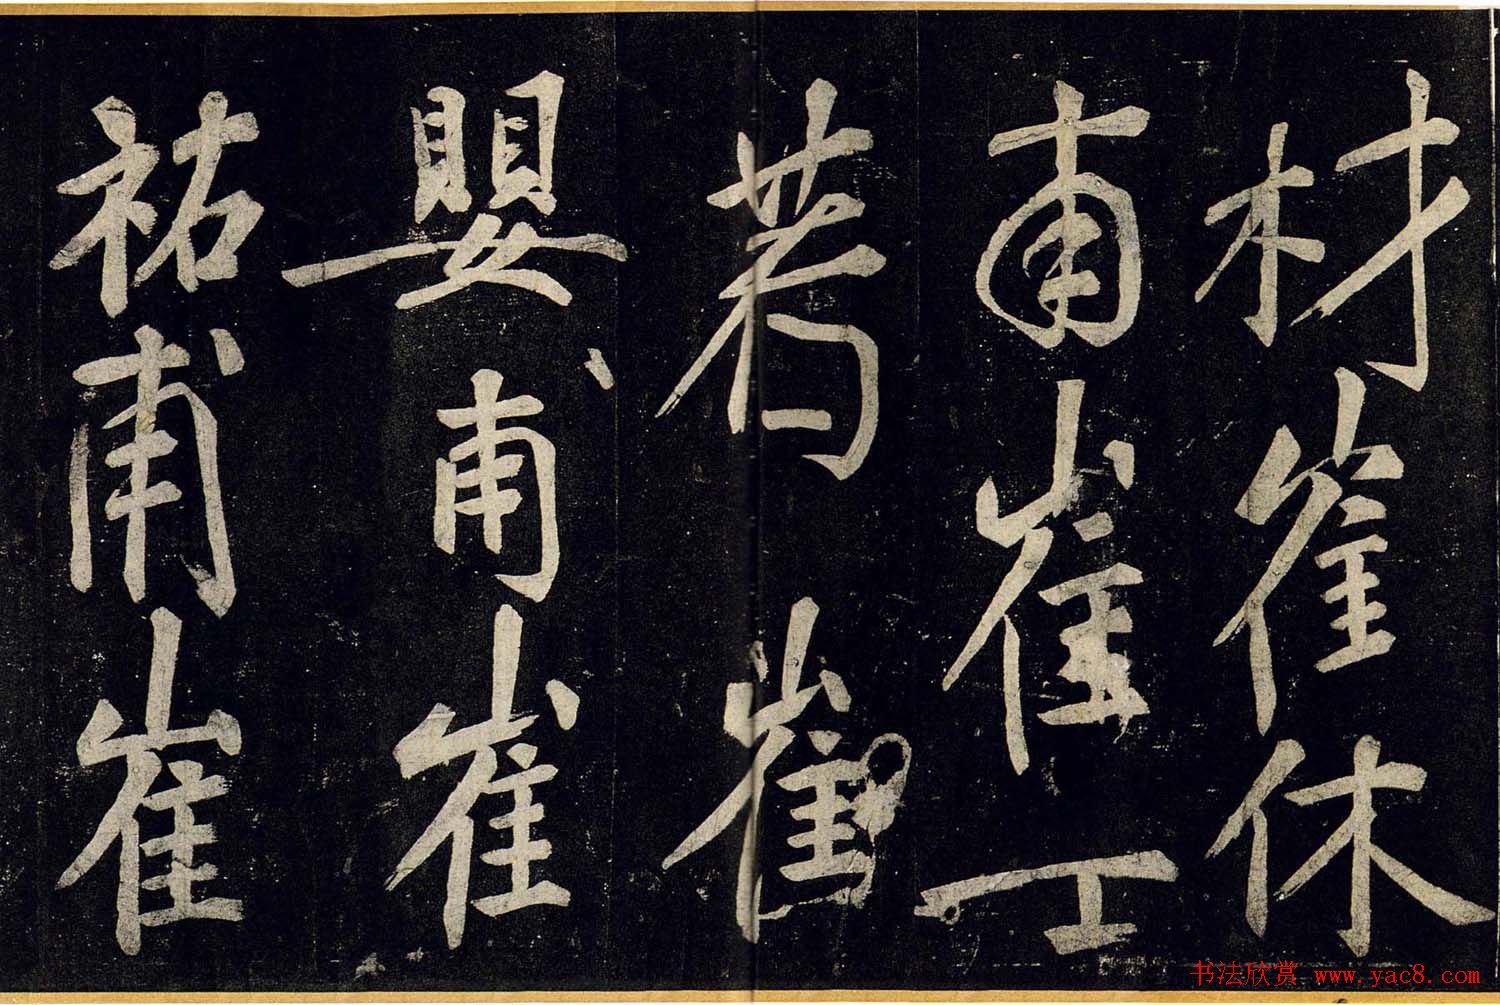 材崔休
甫崔工
著崔
嬰甫崔
祐甫崔
书法欣赏 www.yac8.com